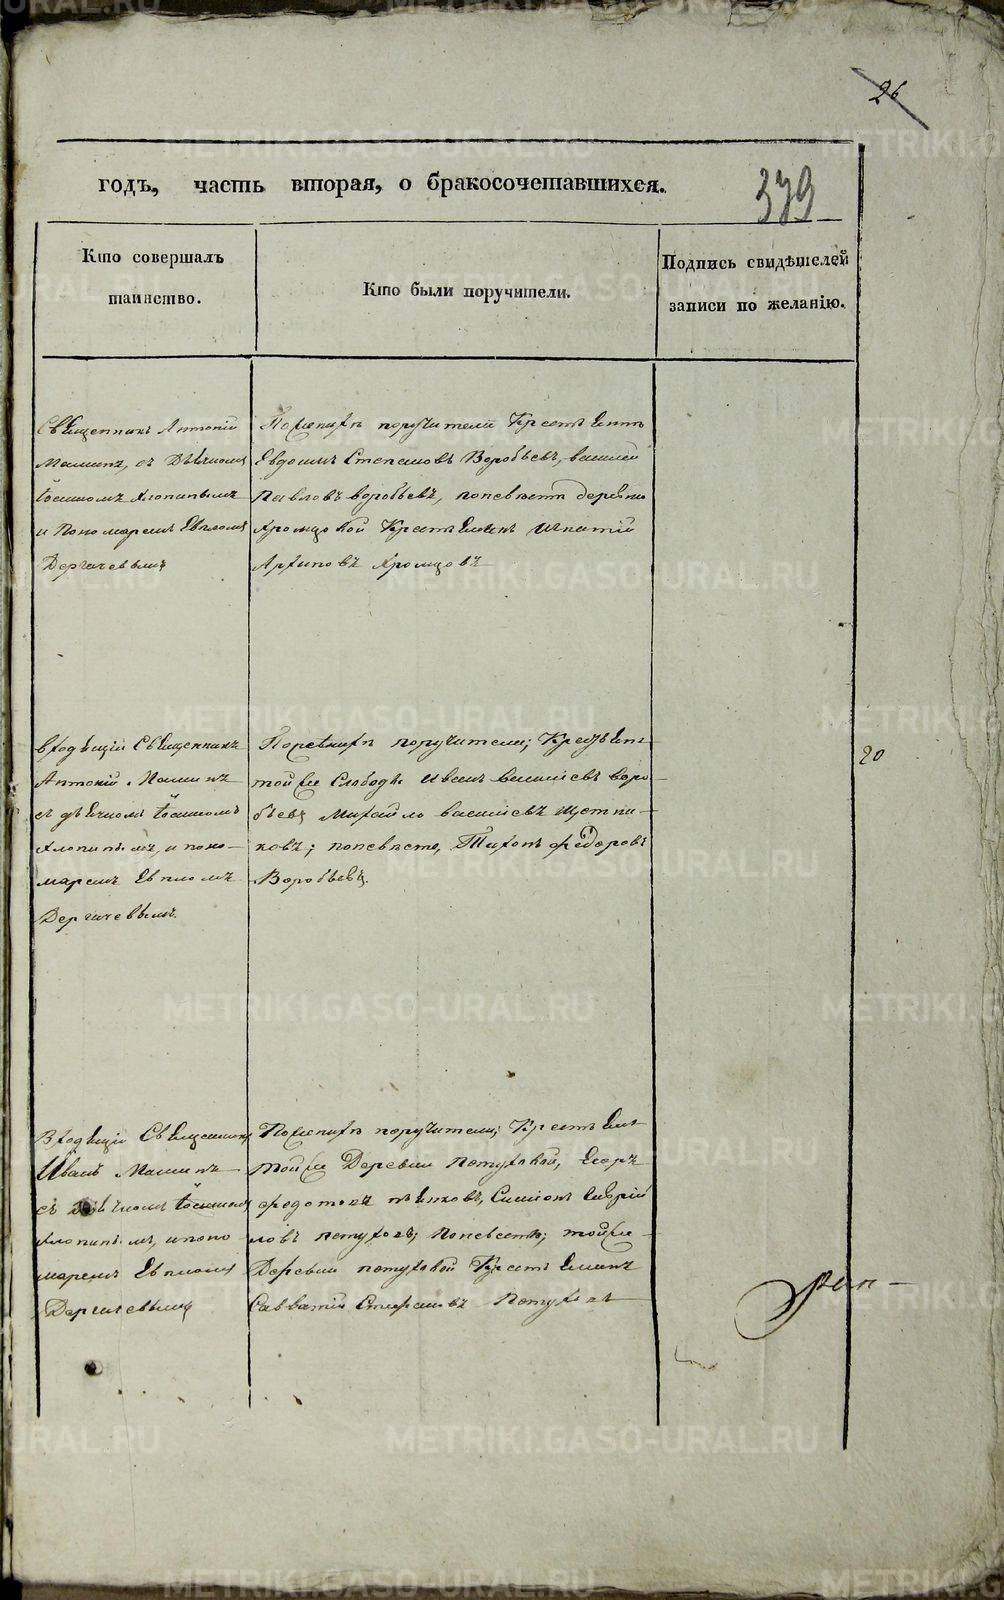 26
годъ, часть вторая, о бракосочетавшихся.
379
Кто совершалъ
таинство.
Кто были поручители.
Подпись свидѣтелей
записи по желанію.
Священникъ Антоній
с Дьячкомъ
и Пономаремъ Евпломъ
Дергачевымъ
По женихѣ поручители Крестьянѣ
Евдокимъ Степановъ Воробьевъ, василей
Павловъ воробьевъ, поневѣстѣ деревни
Хромцовой Крестьянинъ Игнатій
Архиповъ Хромцовъ
Священникъ
Антоній
съ дьячкомъ
Хлопинымъ, и поно-
маремъ Евпломъ
Дергачевымъ.
поручители; Крестьянѣ
той же Слободы Иванъ василіевъ воро-
бьевъ Михайло василіевъ Щетни-
ковъ; поневѣсте, Тихонъ федоровъ
Воробьевъ.
20
Священникъ
Иванъ
съ Дьячкомъ
Хлопинымъ, и поно
маремъ Евпломъ
Дергачевымъ
По женихѣ поручители; Крестьянѣ
той же Деревни Петуховой, Егоръ
федотовъ Симіонъ Гаврій
ловъ петуховъ; поневѣстѣ; той же
Деревни петуховой Крестьянинъ
Савватій Стефановъ Петуховъ
METRIKI.GASO-URAL.RU